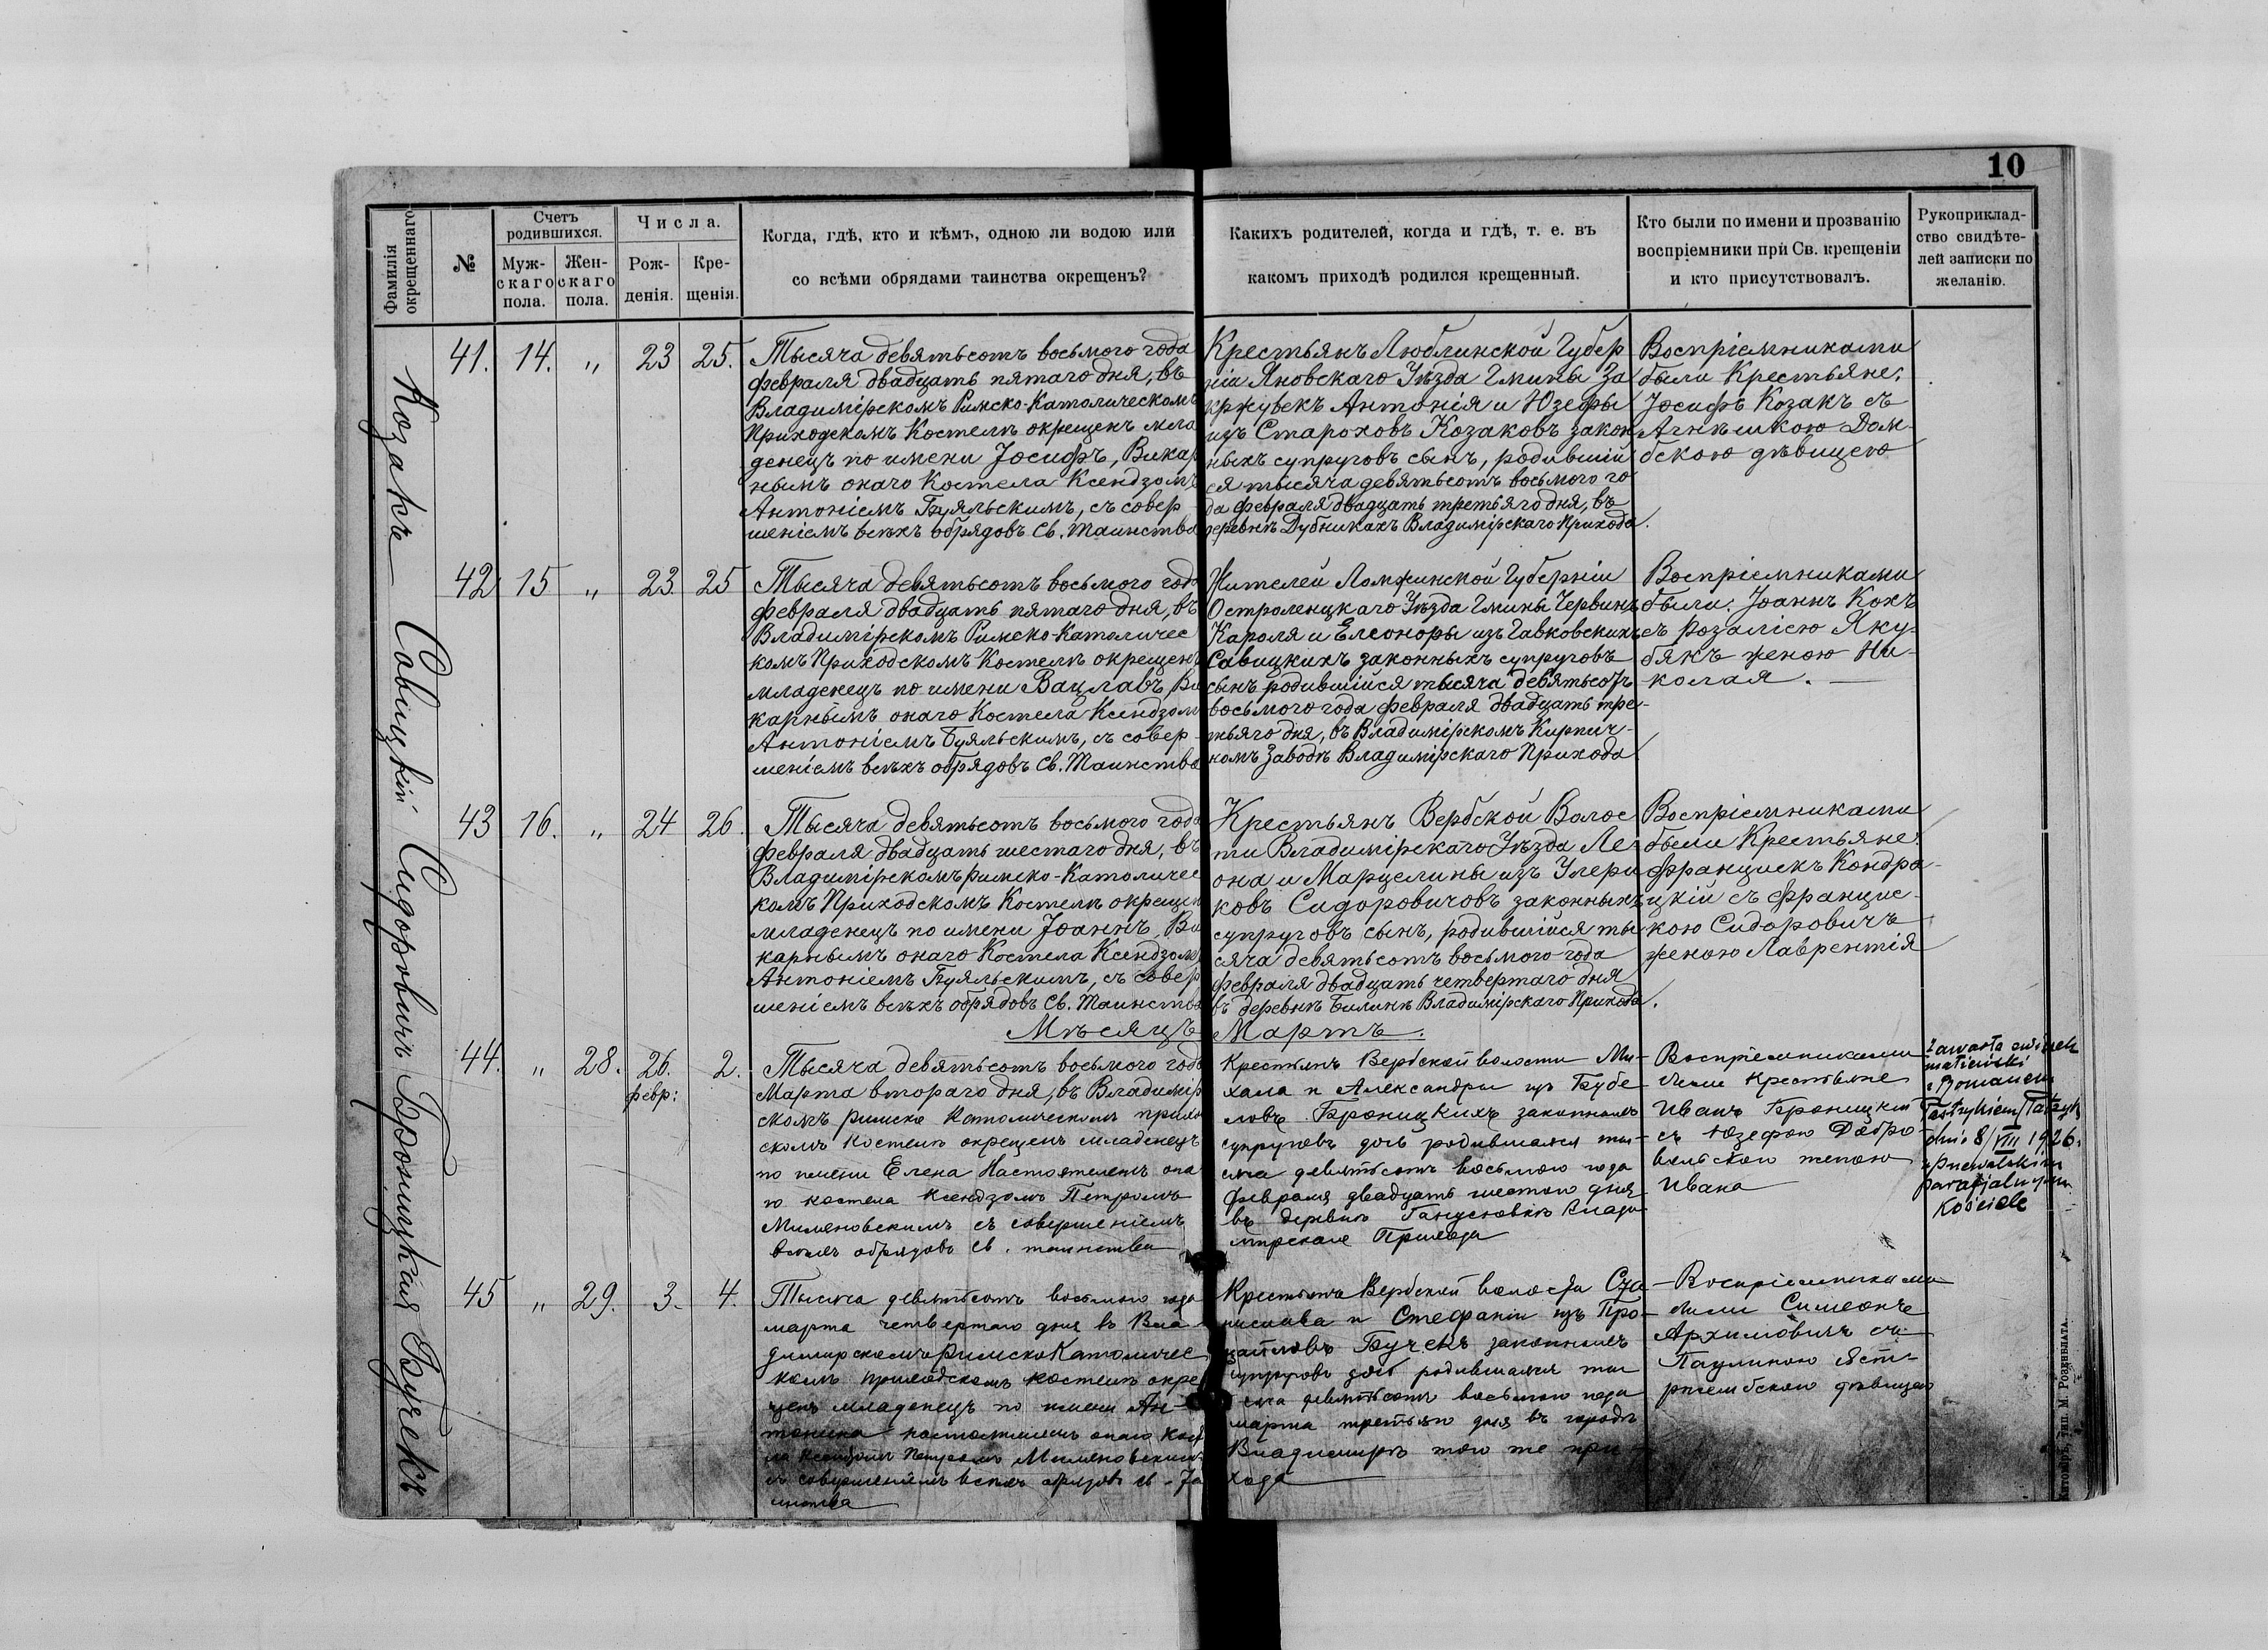 10
Фамилія окрещеннаго
№
Счетъ родившихся.
Муж-
скаго
пола.
Жен-
скаго
пола.
Числа.
Рож-
денія.
Кре-
щенія.
Когда, гдѣ, кто и кѣмъ, одною ли водою или
со всѣми обрядами таинства окрещенъ?
Какихъ родителей, когда и гдѣ, т. е. въ
какомъ приходѣ родился крещенный.
Кто были по имени и прозванію
воспріемники при Св. крещеніи
и кто присутствовалъ.
Рукоприклад-
ство свидѣте-
лей записки по
желанію.
Козакъ
41. 14. „ 23 25.
Тысяча девятьсотъ восьмого года
февраля двадцать пятаго дня, въ
Владимірскомъ Римско-Католическомъ
Приходскомъ Костелѣ окрещенъ мла
денецъ по имени Іосифъ, Викар
нымъ онаго Костела Ксендзомъ
Антоніемъ Буяльскимъ, съ совер
шеніемъ всѣхъ обрядовъ Св. Таинства
Крестьянъ Люблинской Губер
ніи Яновскаго Уѣзда Гмины За
кржувекъ Антонія и Юзефы
изъ Староховъ Козаковъ закон
ныхъ супруговъ сынъ, родившій
ся тысяча девятьсотъ восьмого го
да февраля двадцать третьяго дня, въ
деревнѣ Дубникахъ Владимірскаго Прихода.
Воспріемниками
были Крестьяне:
Іосифъ Козакъ съ
Агнѣшкою Дом-
бскою дѣвицею
Савицкій
42 15 „ 23. 25
Тысяча девятьсотъ восьмого года
февраля двадцать пятаго дня, въ
Владимірскомъ Римско-Католичес
комъ Приходскомъ Костелѣ окрещенъ
младенецъ по имени Вацлавъ, Ви
карнымъ онаго Костела Ксендзомъ
Антоніемъ Буяльскимъ, съ совер-
шеніемъ всѣхъ обрядовъ Св. Таинства
Жителей Ломжинской Губерніи
Остроленцкаго Уѣзда Гмины Червинъ
Кароля и Елеоноры изъ Гавковскихъ
Савицкихъ законныхъ супруговъ
сынъ родившійся тысяча девятьсотъ
восьмого года февраля двадцать тре-
тьяго дня, въ Владимірскомъ Кирпич-
номъ Заводѣ Владимірскаго Прихода
Воспріемниками
были: Іоаннъ Кохъ
съ Розаліею Яку-
бякъ женою Ни-
колая. —
Сидоровичъ
43 16. „ 24 26.
Тысяча девятьсотъ восьмого года
февраля двадцать шестаго дня, въ
Владимірскомъ Римско-Католичес
комъ Приходскомъ Костелѣ окрещенъ
младенецъ по имени Іоаннъ, Ви
карнымъ онаго Костела Ксендзомъ
Антоніемъ Буяльскимъ, съ совер
шеніемъ всѣхъ обрядовъ Св. Таинства
Крестьянъ Вербской Волос
ти Владимірскаго Уѣзда Ле-
она и Марцелины изъ Улери
ковъ Сидоровичовъ законныхъ
супруговъ сынъ, родившійся ты
сяча девятьсотъ восьмого года
февраля двадцать четвертаго дня
въ деревнѣ Билинѣ Владимірскаго Прихода.
Воспріемниками
были Крестьяне:
Францискъ Кондра-
цкій съ Францис-
кою Сидоровичъ
женою Лаврентія
Мѣсяцъ Мартъ.
Броницкая
44. „ 28. 26. февр: 2.
Тысяча девятьсотъ восьмого года
Марта второго дня, въ Владимір
скомъ Римско Католическомъ прихо
скомъ Костелѣ окрещенъ младенецъ
по имени Елена Настоятелемъ она
го костела Ксендзомъ Петромъ
Миляновскимъ съ совершеніемъ
всѣхъ обрядовъ Св. таинства
Крестьянъ Вербской волости Ми-
хала и Александры изъ Бубе
ловъ Броницкихъ законныхъ
супруговъ дочь родившаяся ты-
сяча девятьсотъ восьмого года
февраля двадцать шестого дня
въ деревнѣ Ганусювкѣ Влади
мірскаго Прихода
Воспріемниками
были крестьяне
Иванъ Броницкій
съ Юзефою Добро-
вольской женою
Ивана
Zawarła związek
małżeński
z Romanem
dnia 8/VIII 1926.
parafjalnym
Kościele
Бучекъ
45 „ 29. 3. 4.
Тысяча девятьсотъ восьмого года
марта четвертаго дня въ Вла
димирскомъ Римско Католичес
комъ приходскомъ костелѣ окре
щенъ младенецъ по имени Ан-
тонина настоятелемъ онаго кост
ла Ксендзомъ Петромъ Миляновскимъ
съ совершеніемъ всѣхъ обрядовъ св. Та
инства
Крестьянъ Вербской волости Ста
нислава и Стефаніи изъ Про-
Бучекъ законныхъ
супруговъ дочь родившаяся ты
сяча девятьсотъ восьмого года
марта третьяго дня въ городѣ
Владимирѣ того же при
хода
Воспріемниками
были Симеонъ
Архимовичъ съ
Паулиною Яст-
ржембскою дѣвицею
Житоміръ, тип. М. Розенблата.